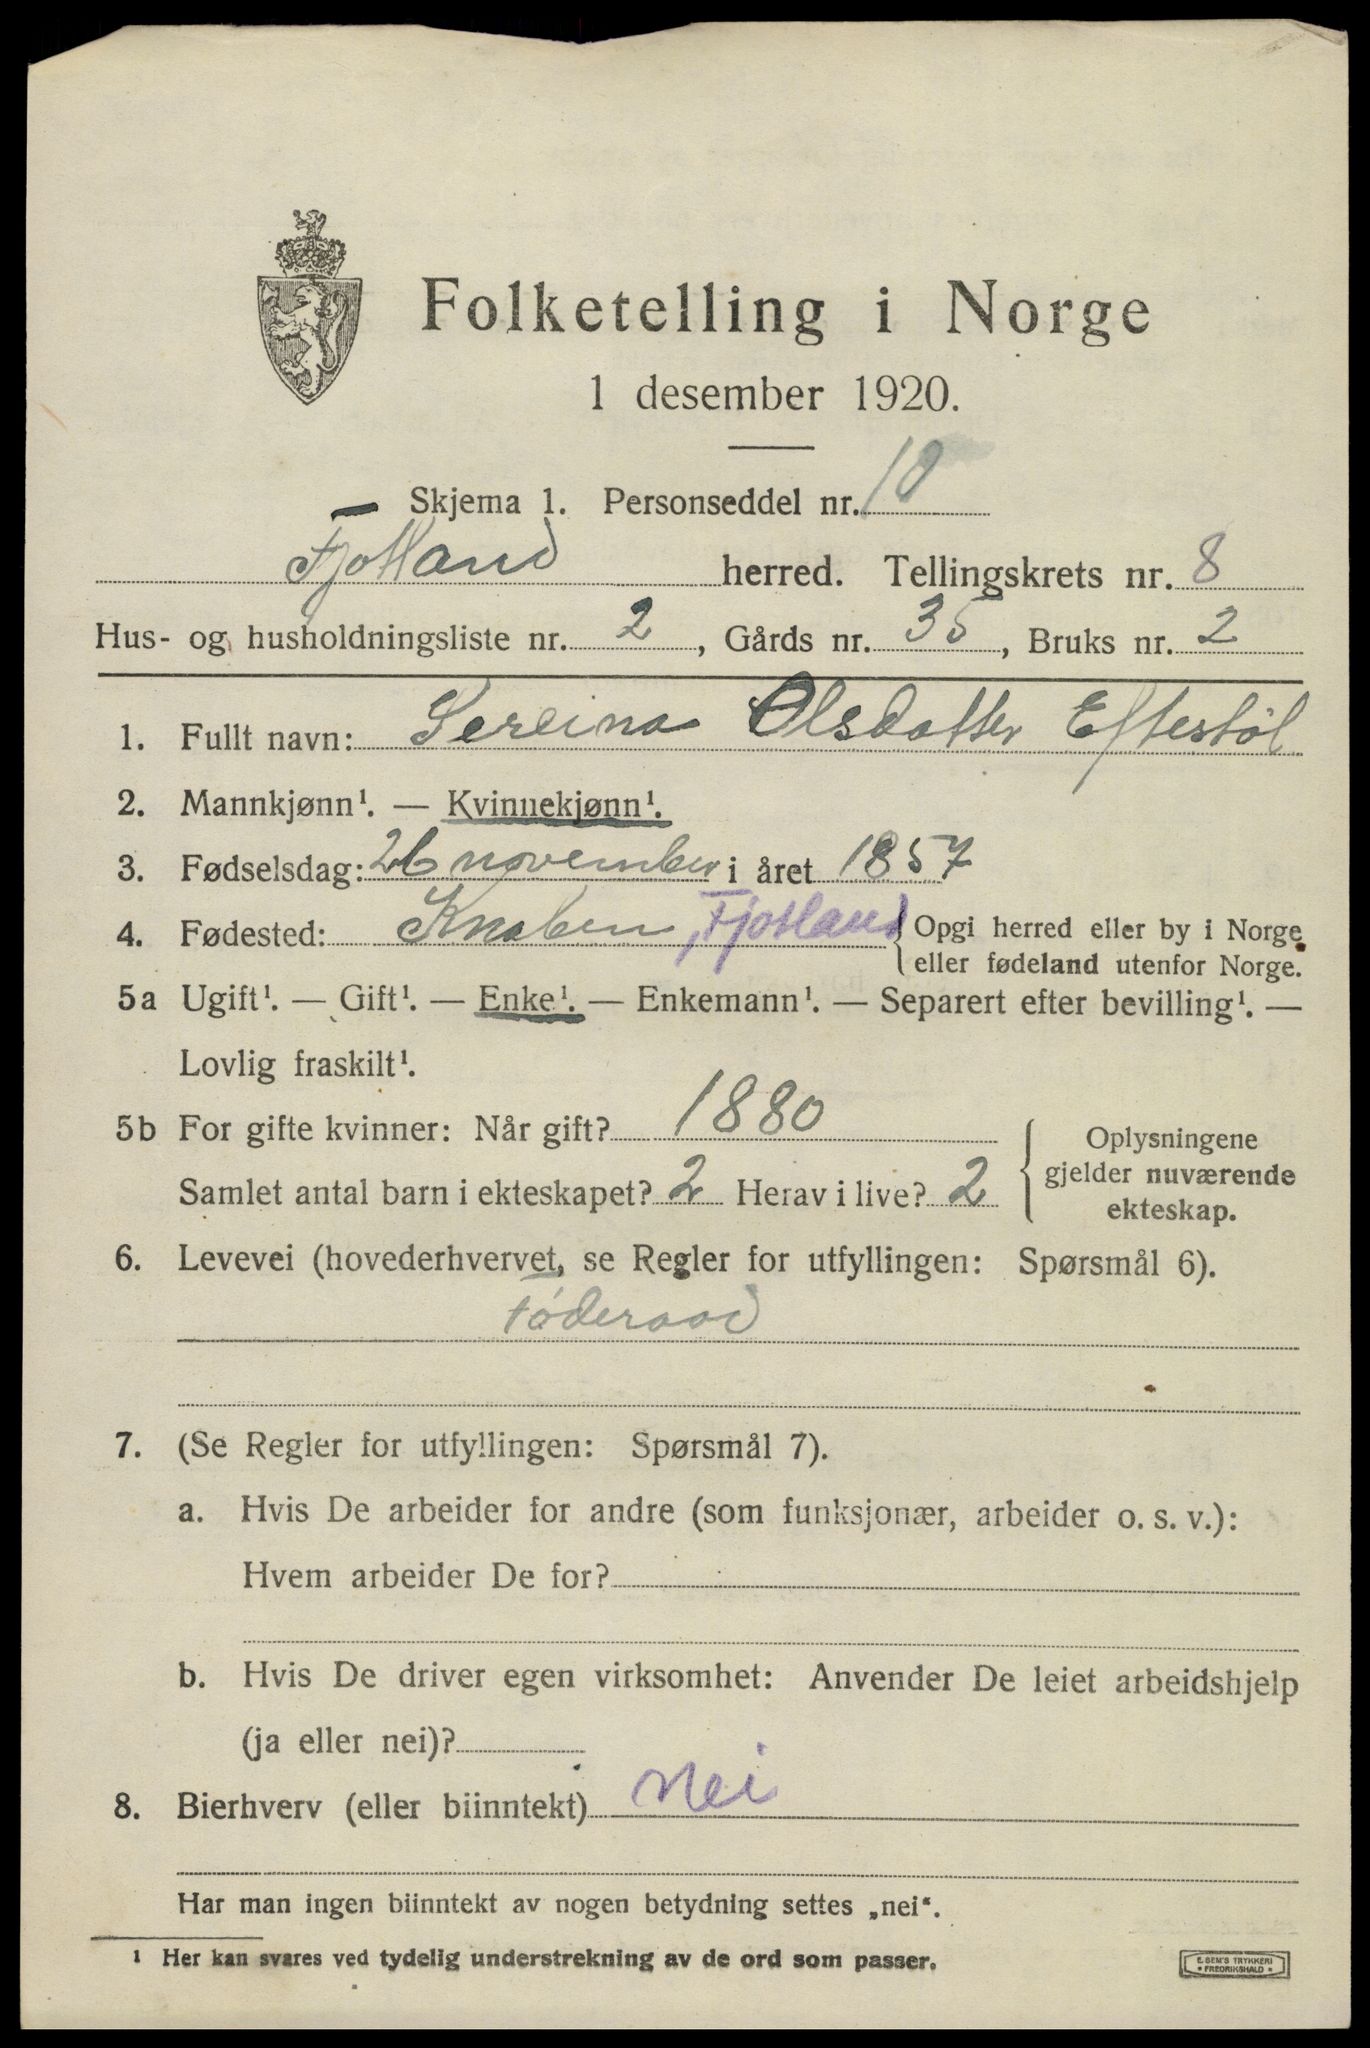 Folketelling i Norge
1 desember 1920.
Skjema 1. Personseddel nr. 10
Fjotland herred. Tellingskrets nr. 8
Hus- og husholdningsliste nr. 2, Gårds nr. 35, Bruks nr. 2
1. Fullt navn: Sereina Olsdatter Eftestöl
2. Mannkjønn¹. — Kvinnekjønn¹.
3. Fødselsdag: 26 november i året 1857
4. Fødested: Knaben, Fjotland { Opgi herred eller by i Norge
eller fødeland utenfor Norge.
5a Ugift¹. — Gift¹. — Enke¹. — Enkemann¹. — Separert efter bevilling¹. —
Lovlig fraskilt¹.
5b For gifte kvinner: Når gift? 1880
Samlet antal barn i ekteskapet? 2 Herav i live? 2
{ Oplysningene
gjelder nuværende
ekteskap.
6. Levevei (hovederhvervet, se Regler for utfyllingen: Spørsmål 6).
Föderaad
7. (Se Regler for utfyllingen: Spørsmål 7).
a. Hvis De arbeider for andre (som funksjonær, arbeider o. s. v.):
Hvem arbeider De for?
b. Hvis De driver egen virksomhet: Anvender De leiet arbeidshjelp
(ja eller nei)?
8. Bierhverv (eller biinntekt) Nei
Har man ingen biinntekt av nogen betydning settes „nei“.
¹ Her kan svares ved tydelig understrekning av de ord som passer.
E. SEM'S TRYKKERI
* FREDRIKSHALD *